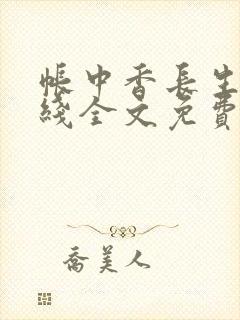 帳中香長生
綫全文免費
喬美人